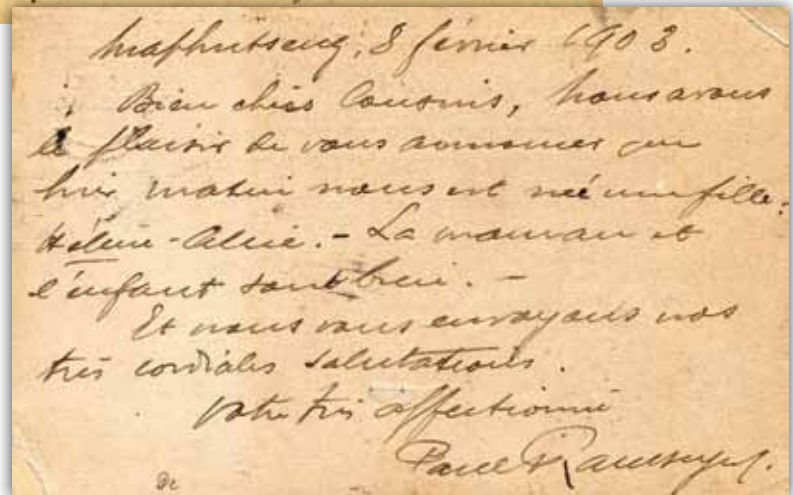 Maphutseng, 8 février 1903.
Bien chers Cousins, Nous avons
le plaisir de vous annoncer que
hier matin nous est née une fille:
Hélène-Alice. - La maman et
l'enfant sont bien. -
Et nous vous envoyons nos
très cordiales salutations.
Votre très affectionné
Paul Ramseyer.
de